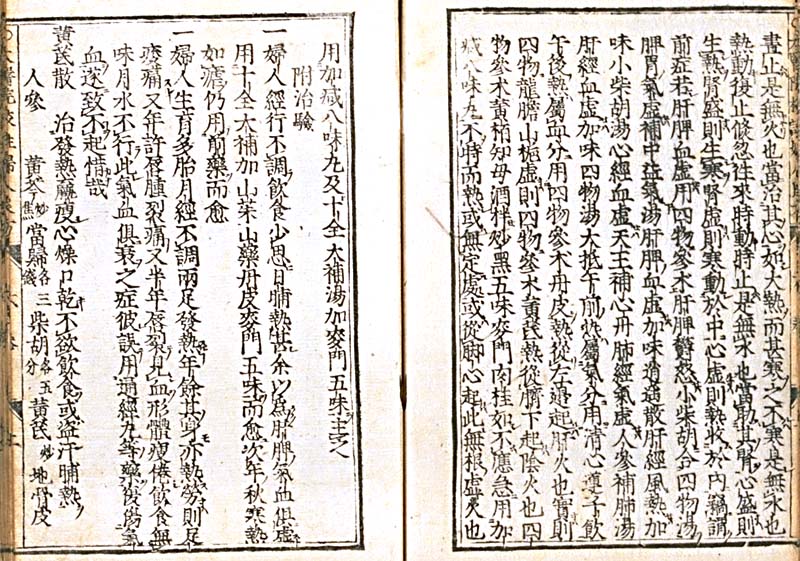 晝止是無火也當治其心如大熱而甚寒之不寒是無水也
熱動後止倐忽往來時動時止是無水也當助其腎心盛則
生熱腎盛則生寒腎虛則寒動於中心虛則熱收於内竊謂
前症若肝脾血虛用四物參术肝脾鬱怒小柴胡合四物湯
脾胃氣虛補中益氣湯肝脾血虛加味逍遙散肝經風熱加
味小柴胡湯心經血虛天王補心丹肺經氣虛人參補肺湯
肝經血虛加味四物湯大抵午前熱屬氣分用清心蓮子飲
午後熱屬血分用四物參术丹皮熱從左邊起肝火也實則
四物龍膽山梔虛則四物參术黃芪熱從臍下起陰火也四
物參术黃栢知母酒拌炒黑五味麥門肉桂如不應急用加
減八味丸不時而熱或無定處或從脚心起此無根虛火也
用加減八味丸及十全大補湯加麥門五味主之
附治驗
一婦人經行不調飲食少思日晡熱甚余以爲肝脾氣血俱虛
用十全大補加山茱山藥丹皮麥門五味而愈次年秋寒熱
如瘧仍用前藥而愈
一婦人生育多胎月經不調兩足發熱年餘其身亦熱勞則足
痠痛又年許唇腫裂痛又半年唇裂見血形體瘦倦飲食無
味月水不行此氣血俱衰之症彼誤用通經丸等藥復傷
血遂致不起惜哉
黃芪散 治發熱羸瘦心燥口乾不欲飲食或盜汗晡熱
人參 黃芩炒焦 當歸各三錢 柴胡各五分 黃芪炒 地骨皮